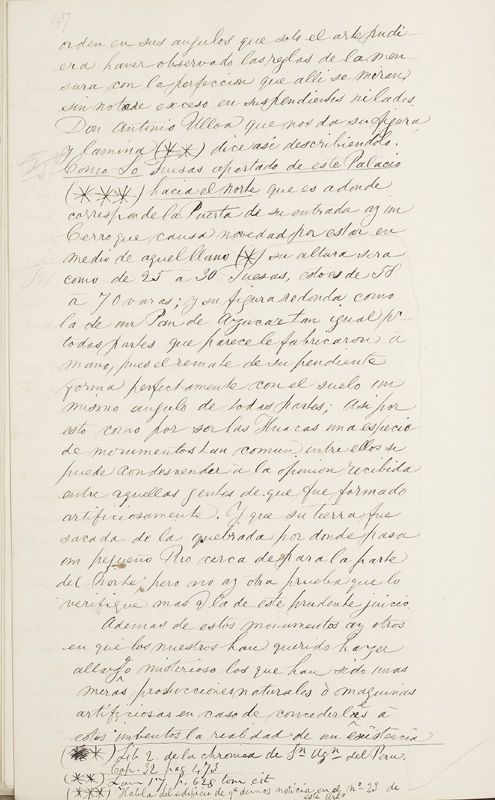 47
orden en sus angulos que solo el arte pudi-
era haver observado las reglas de la men-
sura con la perfeccion que alli se miran,
sin notarse exceso en sus pendientes ni lados.
Don Antonio Ulloa que nos da su figura,
y lamina (**) dice asi describiendolo.
Como 50 Tuesas apartado de este Palacio
(***) hacia el norte que es a donde
corresponde la Puerta de su entrada ay un
Cerro que causa novedad por estar en
medio de aquel llano (*) su altura sera
como de 25 a 30 Tuesas, esto es de 58
a 70 varas; y su figura redonda como
la de un Pan de Azucar tan igual pr
todas partes que parece le fabricaron à
mano, pues el remate de su pendiente
forma perfectamente con el suelo un
mismo angulo de todas partes; Asi por
esto como por ser las Huacas una especie
de monumentos tan comun entre ellos se
puede condesender a la opinion recibida
entre aquellas gentes de que fue formado
artificiosamente. Y que su tierra fue
sacada de la quebrada por donde pasa
un pequeño Rio cerca de para la parte
del Norte; pero no ay otra prueba que lo
verifique mas q la de este prudente juicio.
Ademas de estos monumentos ay otros
en que los nuestros han querido hayar
algo misterioso los que han sido unas
meras producciones naturales ò maquinas
artificiosas en caso de concederles a
estos inventos la realidad de su existencia
(**) Lib 2. de la chronica de Sn Agn del Peru.
Cap. 32 pag 473
(**) Lam 17 p. 628 tom cit
(***) Habla del edificio de qe dimos noticia en el no 23 de
este Arto